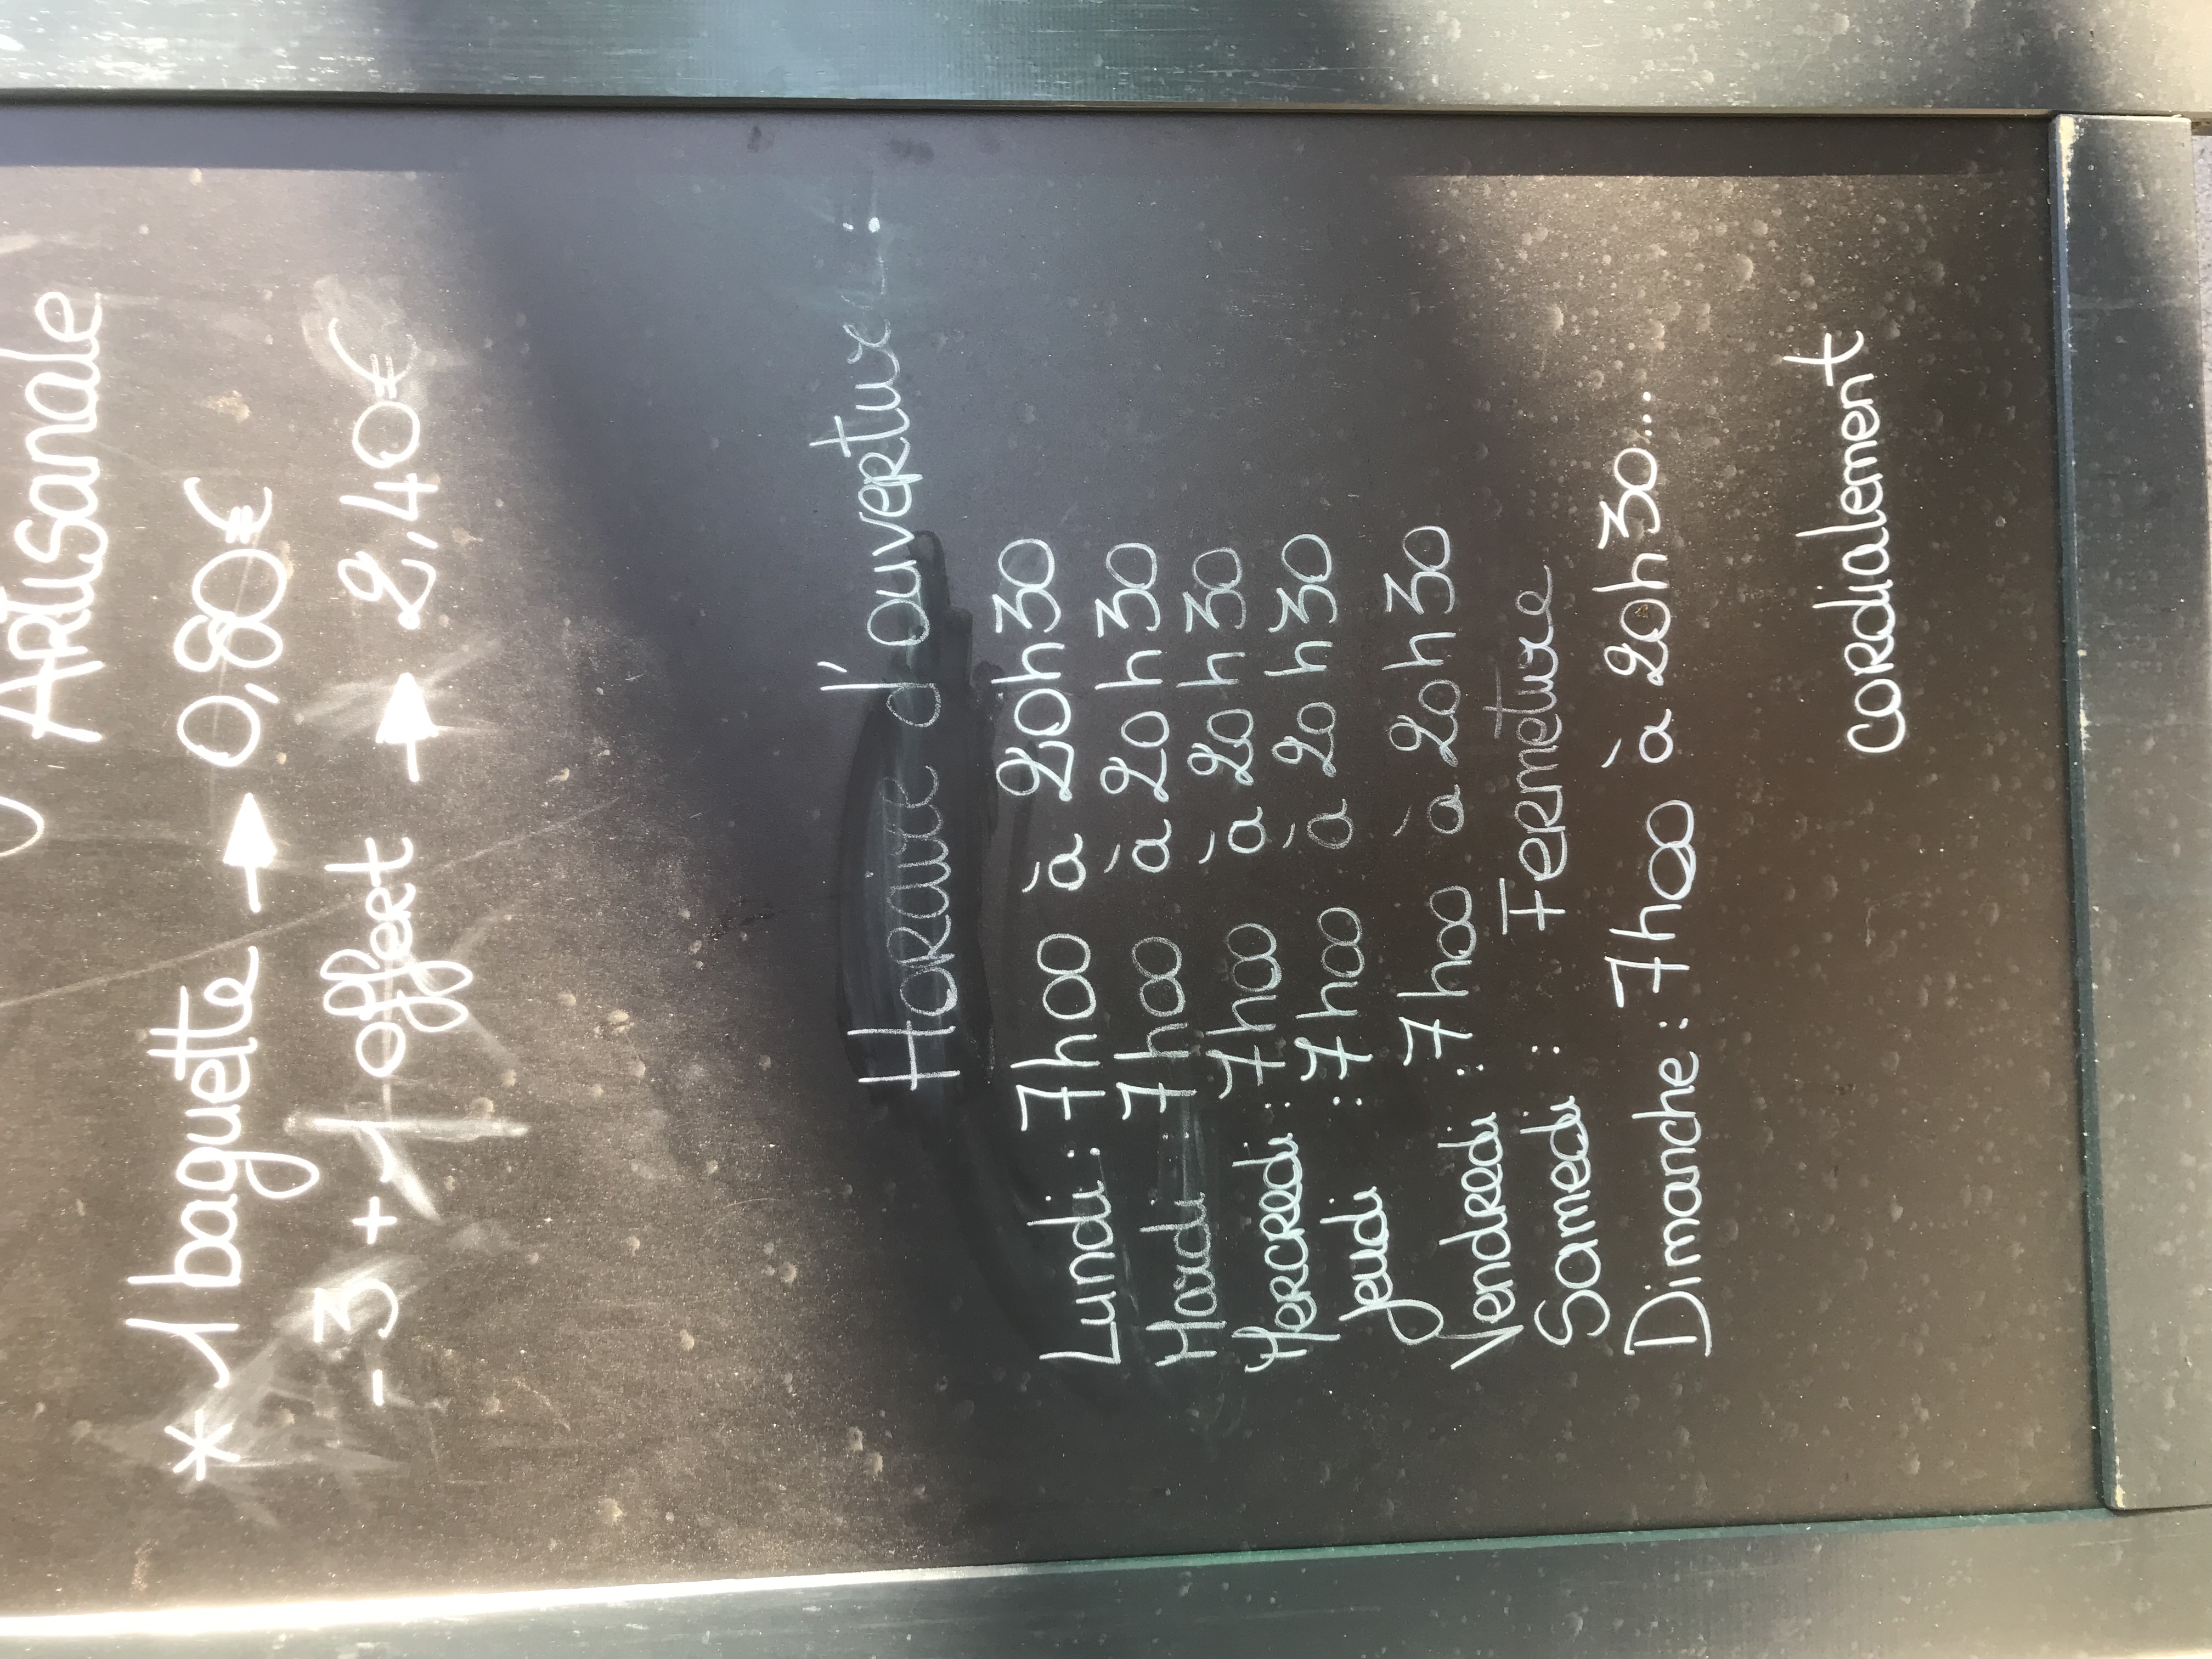 Artisanale
* 1 baguette → 0,80€
- 3 + 1 offert → 2,40€
Horaire d'ouverture :
Lundi : 7h00 à 20h30
Mardi : 7h00 à 20h30
Mercredi : 7h00 à 20h30
jeudi : 7h00 à 20h30
Vendredi : 7h00 à 20h30
Samedi : Fermeture
Dimanche : 7h00 à 20h30...
cordialement